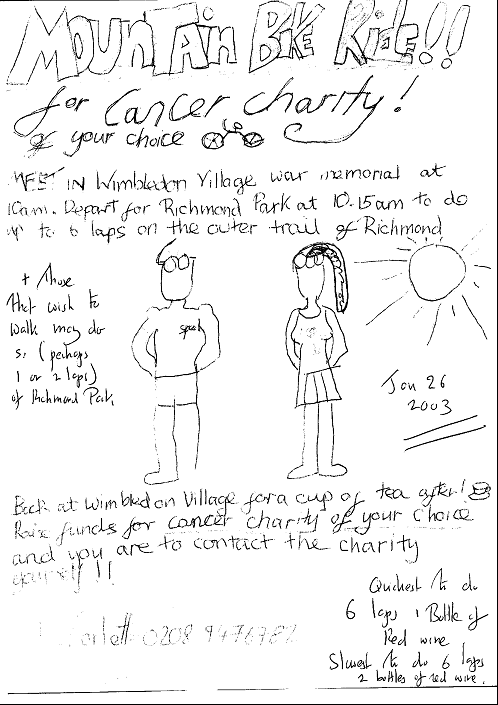 MOUNTAIN BIKE RIDE!!
for cancer charity!
of your choice
MEET IN Wimbledon Village war memorial at
10am. Depart for Richmond Park at 10.15am to do
up to 6 laps on the outer trail of Richmond
+ those
that wish to
walk may do
so (perhaps
1 or 2 laps)
of Richmond Park
speed
Jan 26
2003
Back at Wimbledon Village for a cup of tea after!
Raise funds for cancer charity of your choice
and you are to contact the charity
yourself!!
0208 9476782
Quickest to do
6 laps 1 Bottle of
Red wine
Slowest to do 6 laps
2 bottles of red wine.